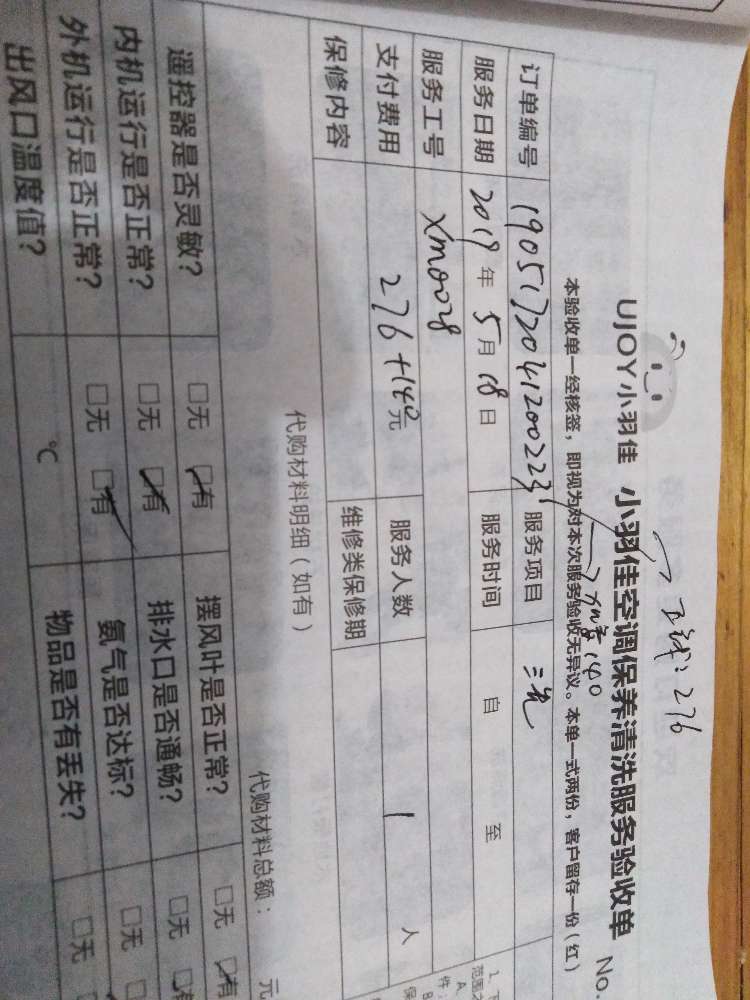 UJOY小羽佳 小羽佳空调保养清洗服务验收单 No.
276
本验收单一经核签，即视为对本次服务验收无异议。本单一式两份，客户留存一份（红）
140
订单编号 19051720412002231 服务项目
服务日期 2019 年 5 月 18 日 服务时间 自 至
服务工号 Xm0028
支付费用 276+140元 服务人数 1 人
保修内容 维修类保修期
代购材料明细（如有）
代购材料总额： 元
遥控器是否灵敏？ □无 □有 摆风叶是否正常？ □无 □有
内机运行是否正常？ □无 □有 排水口是否通畅？ □无 □有
外机运行是否正常？ □无 □有 氨气是否达标？ □无
出风口温度值？ ℃ 物品是否有丢失？ □无